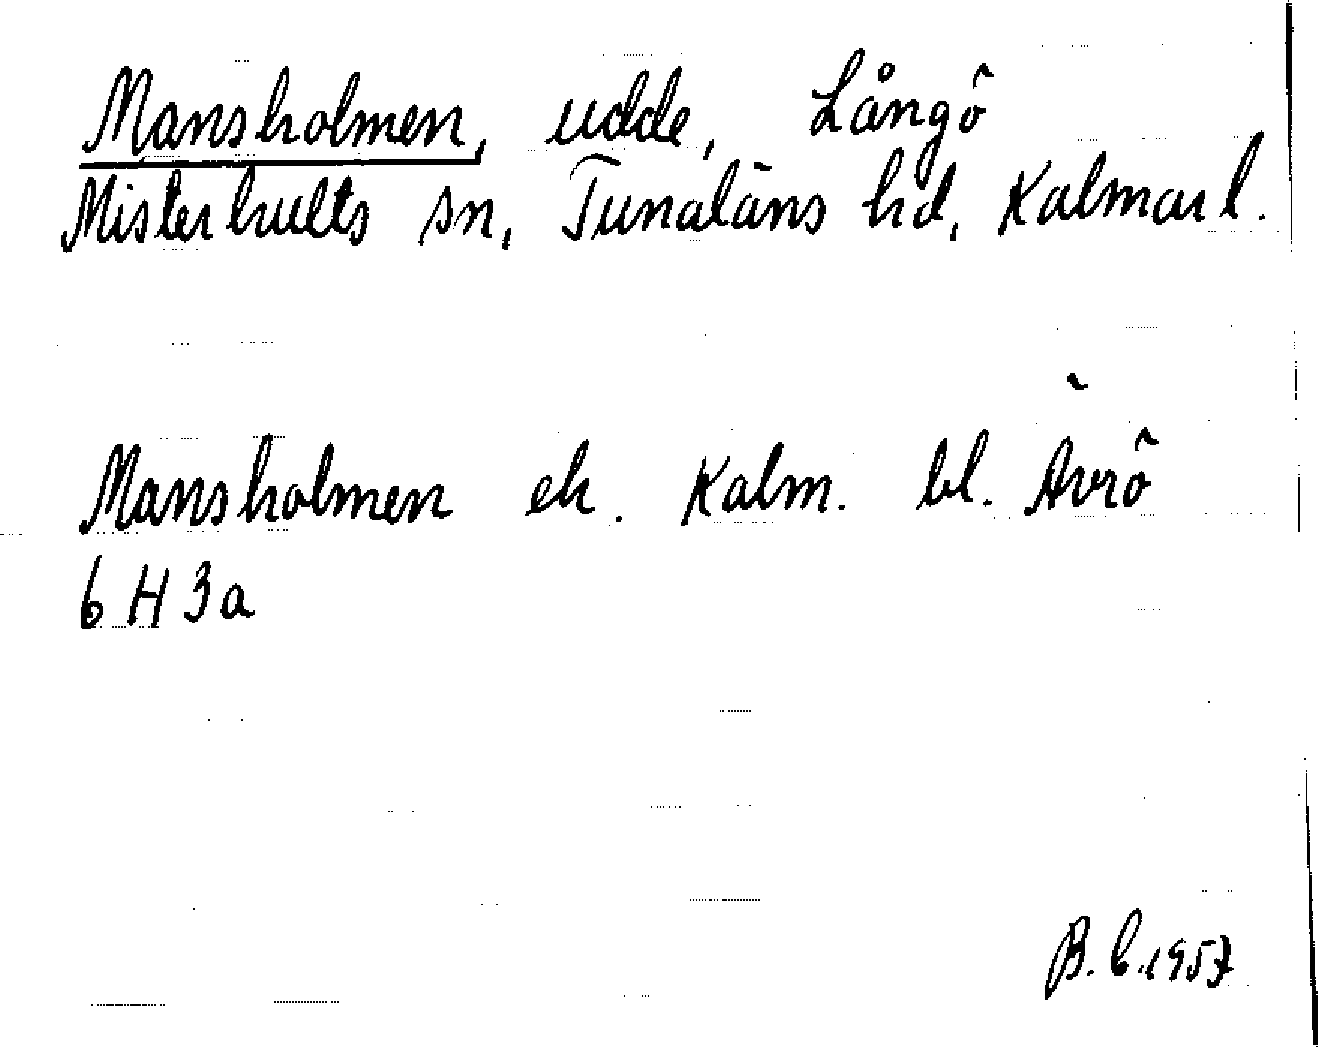 Mansholmen, udde, Långö
Misterhults sn, Tunaläns hd, Kalmar l.
Mansholmen ek. Kalm. bl. Ävrö
6 H 3a
B.C. 1957